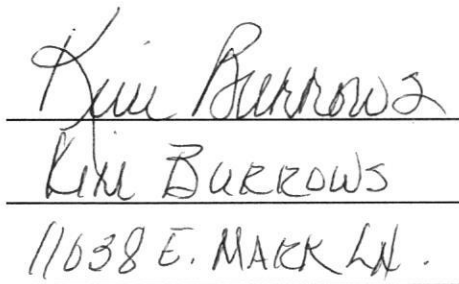 Kim Burrows
Kim BURROWS
11638 E. MARK LN.